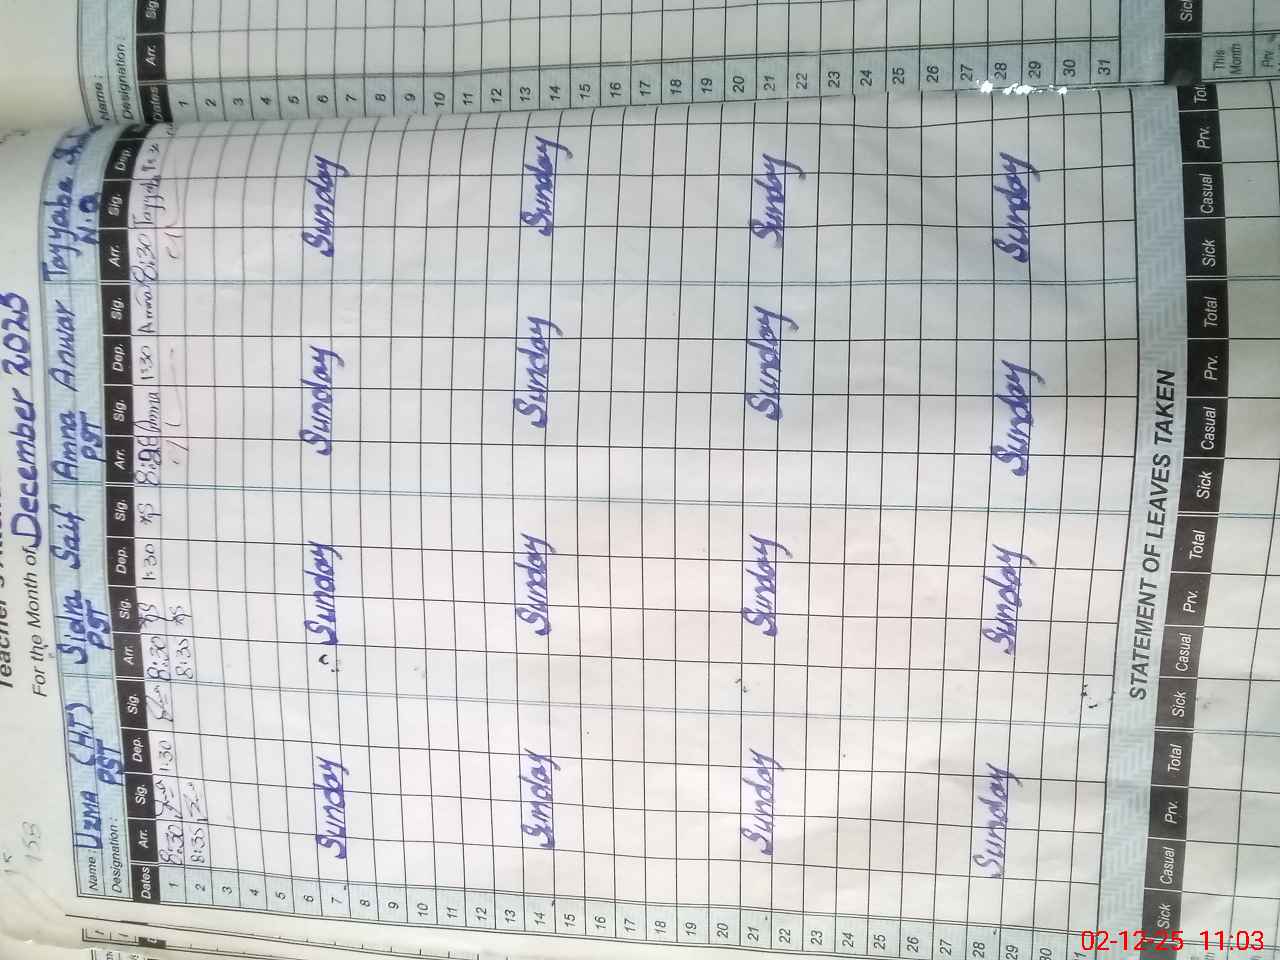 For the Month of December 2025
Name: Uzma (HT) Sidra Saif Amna Anwar Tayyaba
Designation: PST PST PST N.Q
Dates Arr. Sig. Dep. Sig. Arr. Sig. Dep. Sig. Arr. Sig. Dep. Sig. Arr. Sig. Dep.
1 8:30 1:30 8:30 1:30 Amna 1:30 Amna 8:30 Tayyaba 1:30
2 8:35 8:35
3
4
5
6
7 Sunday Sunday Sunday Sunday
8
9
10
11
12
13
14 Sunday Sunday Sunday Sunday
15
16
17
18
19
20
21 Sunday Sunday Sunday Sunday
22
23
24
25
26
27
28 Sunday Sunday Sunday Sunday
29
30
STATEMENT OF LEAVES TAKEN
Sick Casual Prv. Total Sick Casual Prv. Total Sick Casual Prv. Total Sick Casual Prv.
Name:
Designation:
Dates Arr.
1
2
3
4
5
6
7
8
9
10
11
12
13
14
15
16
17
18
19
20
21
22
23
24
25
26
27
28
29
30
31
Sick
This Month
Prv.
02-12-25 11:03